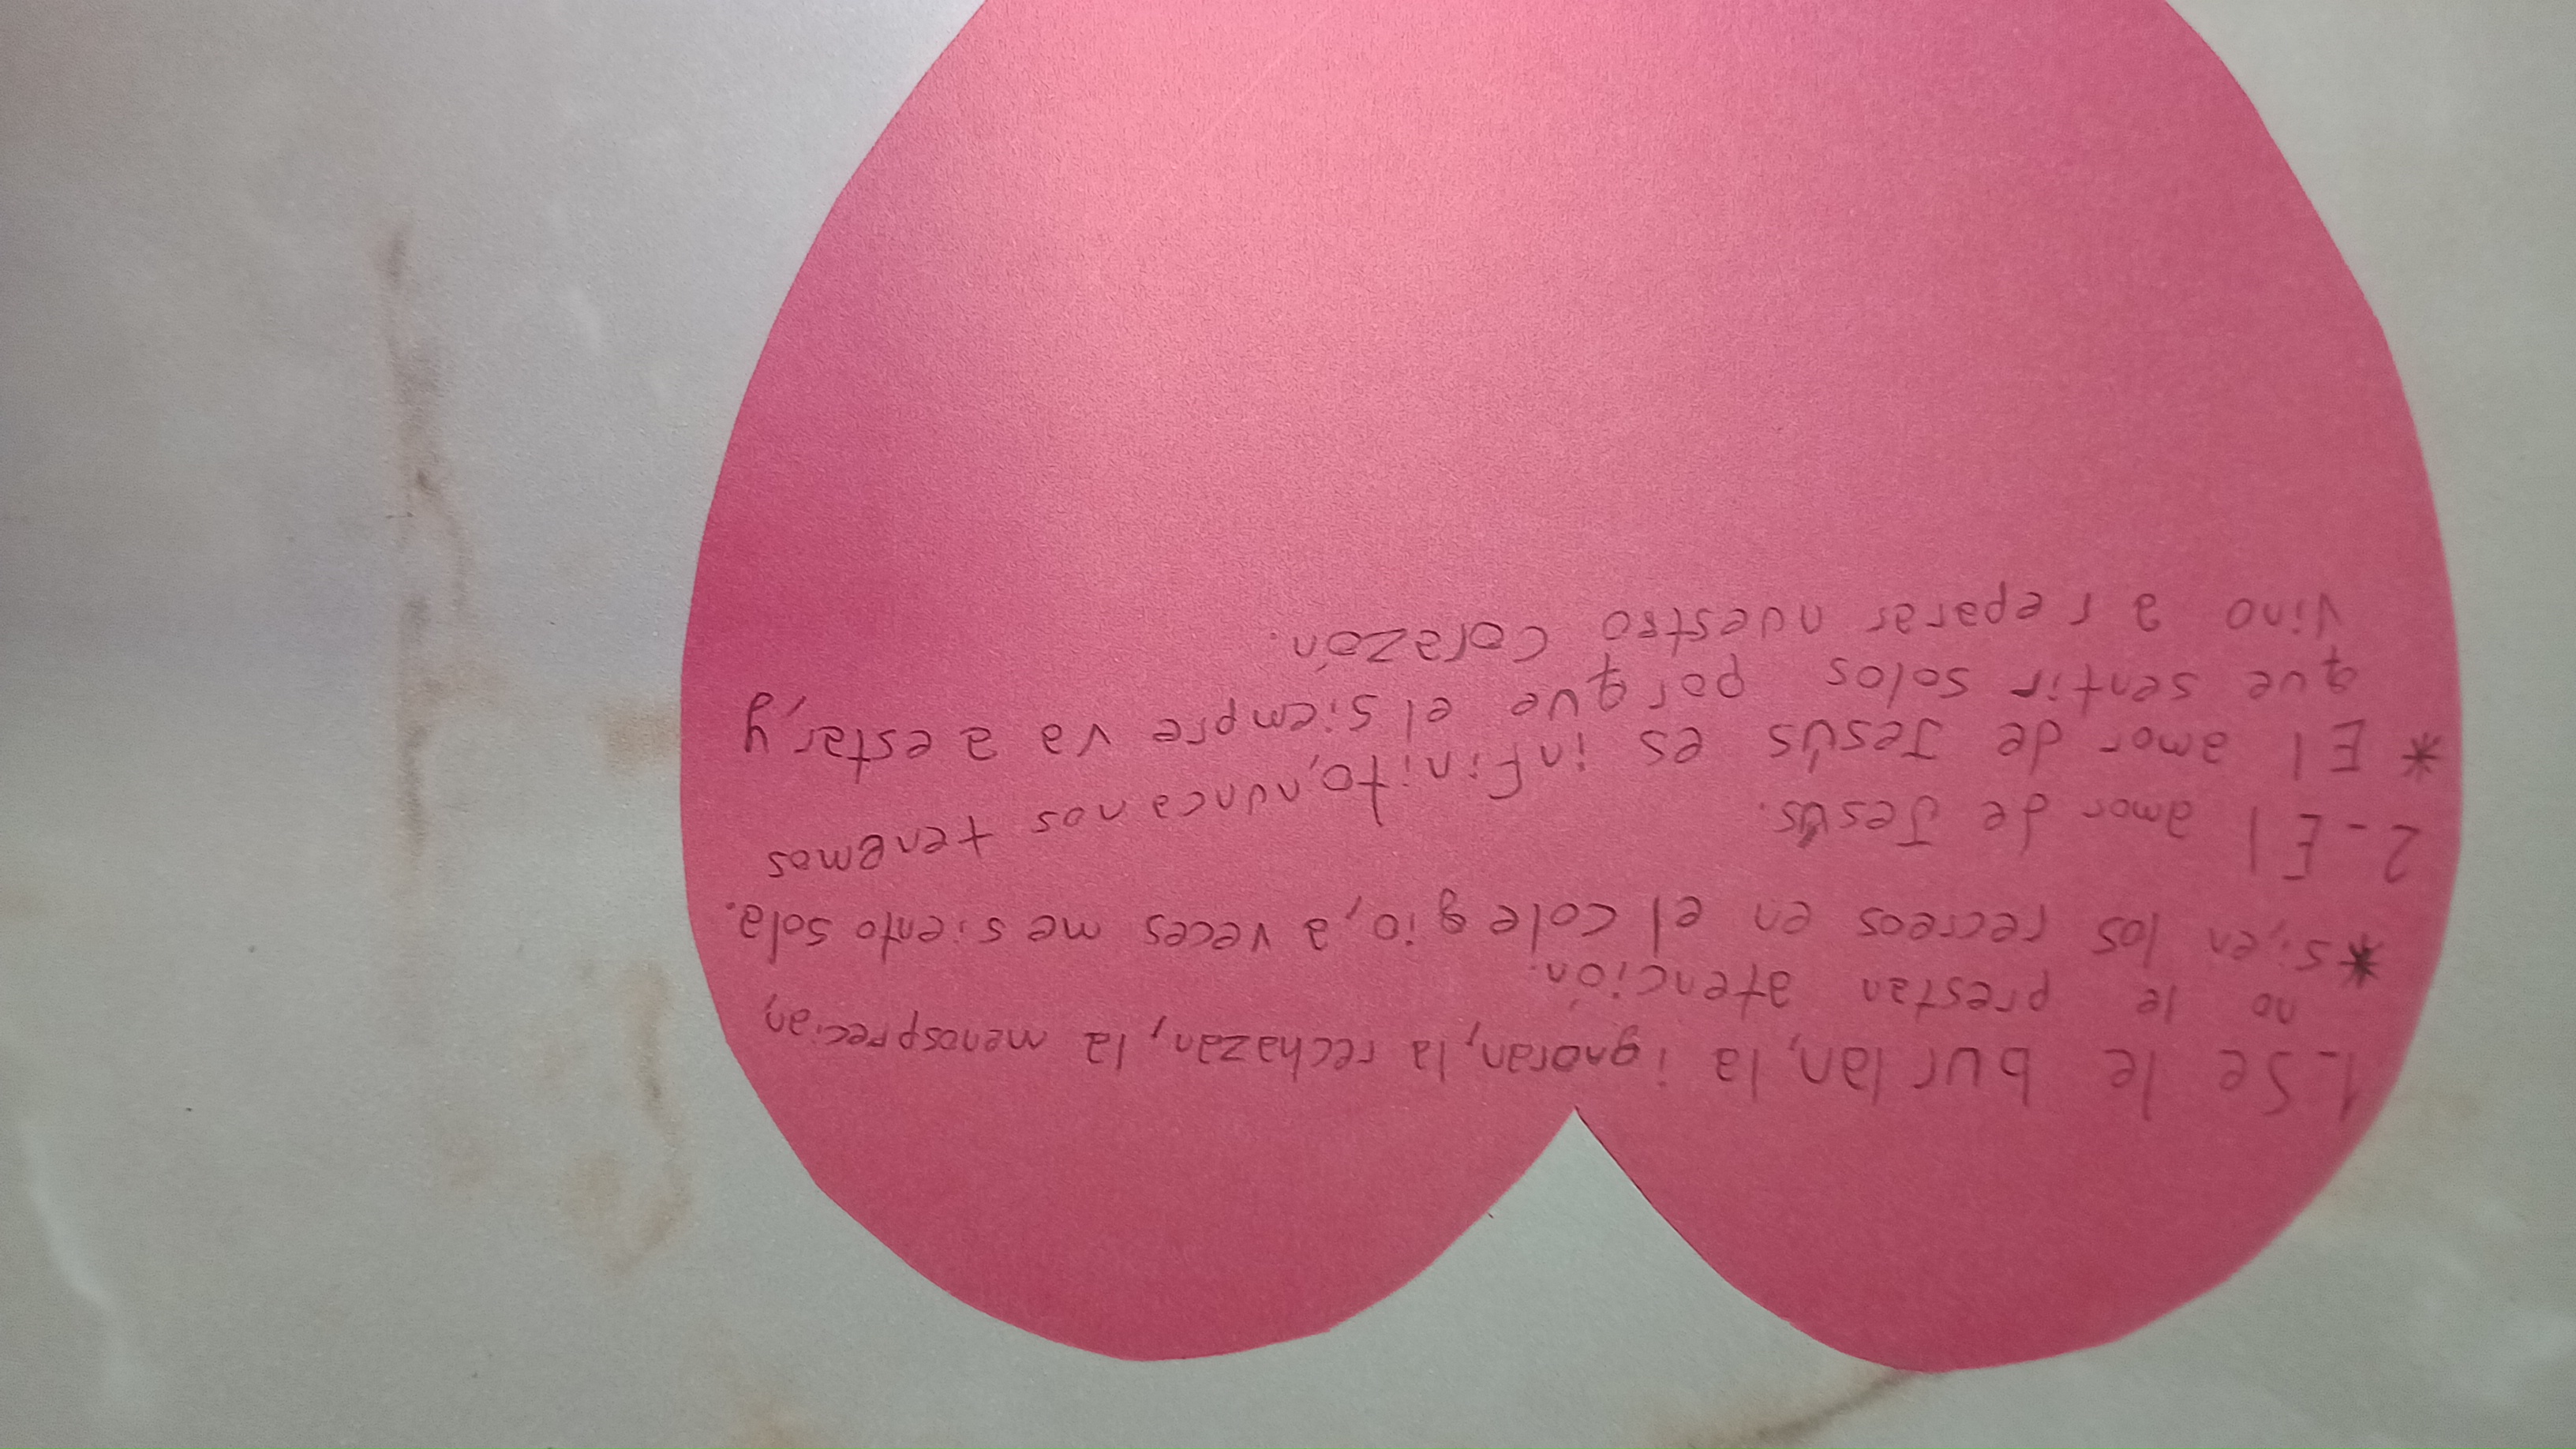 1- Se le burlan, la ignoran, la rechazan, la menosprecian,
no le prestan atención.
* si, en los recreos en el colegio, a veces me siento sola.
2- El amor de Jesús.
* El amor de Jesús es infinito, nunca nos tenemos
que sentir solos porque el siempre va a estar, y
vino a reparar nuestro corazón.